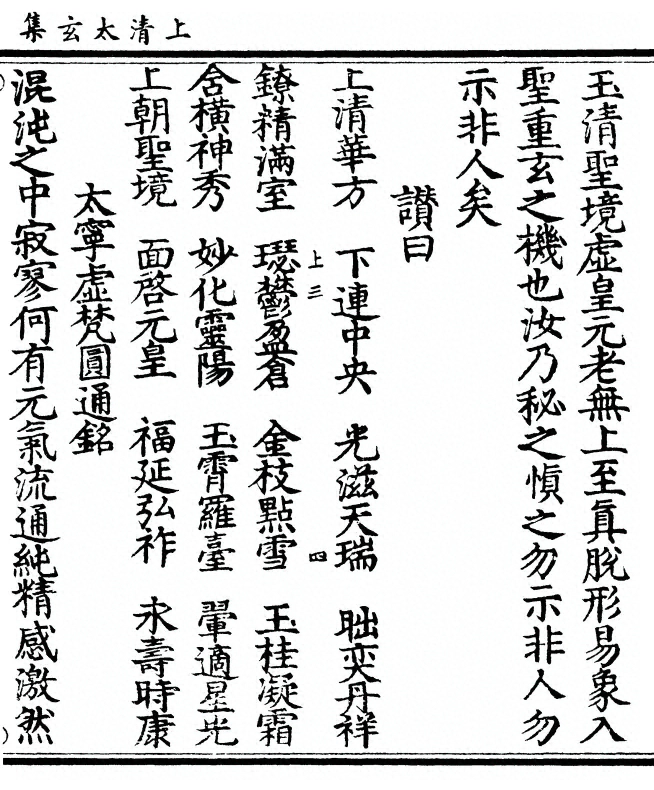 上清太玄集
玉清聖境虛皇元老無上至真脫形易象入
聖重玄之機也汝乃秘之慎之勿示非人勿
示非人矣
讃曰
上清華方　下連中央　光滋天瑞　朏奕丹祥
上三　四
鐐精滿室　璱鬱盈倉　金枝點雪　玉桂凝霜
含橫神秀　妙化靈陽　玉霄羅臺　翬適星光
上朝聖境　面啓元皇　福延弘祚　永壽時康
太寧虛梵圓通銘
混沌之中寂寥何有元氣流通純精感激然